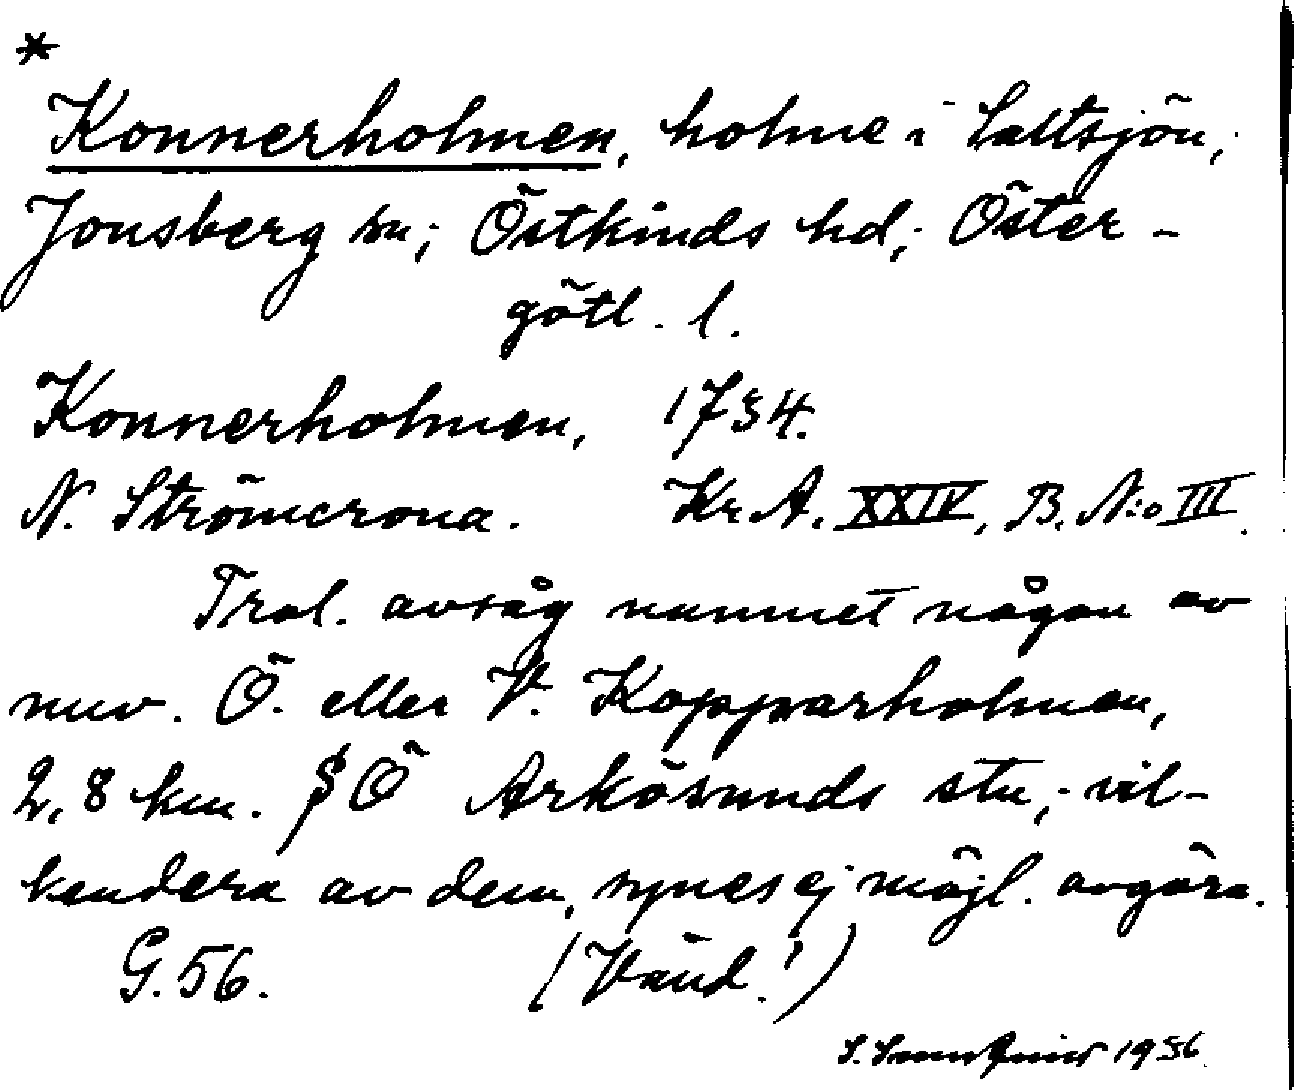 *
Konnerholmen, holme i Saltsjön,
Jonsberg sn; Östkinds hd; Öster-
götl. l.
Konnerholmen, 1734.
N. Strömcrona. Kr. A. XXIV, B. N:o III.
Trol. avsåg namnet någon av
nuv. Ö. eller V. Kopparholmen,
2,8 km. SÖ Arkösunds stn; vil-
kendera av dem, synes ej möjl. avgöra.
G. 56. (Vänd!)
S. 1956